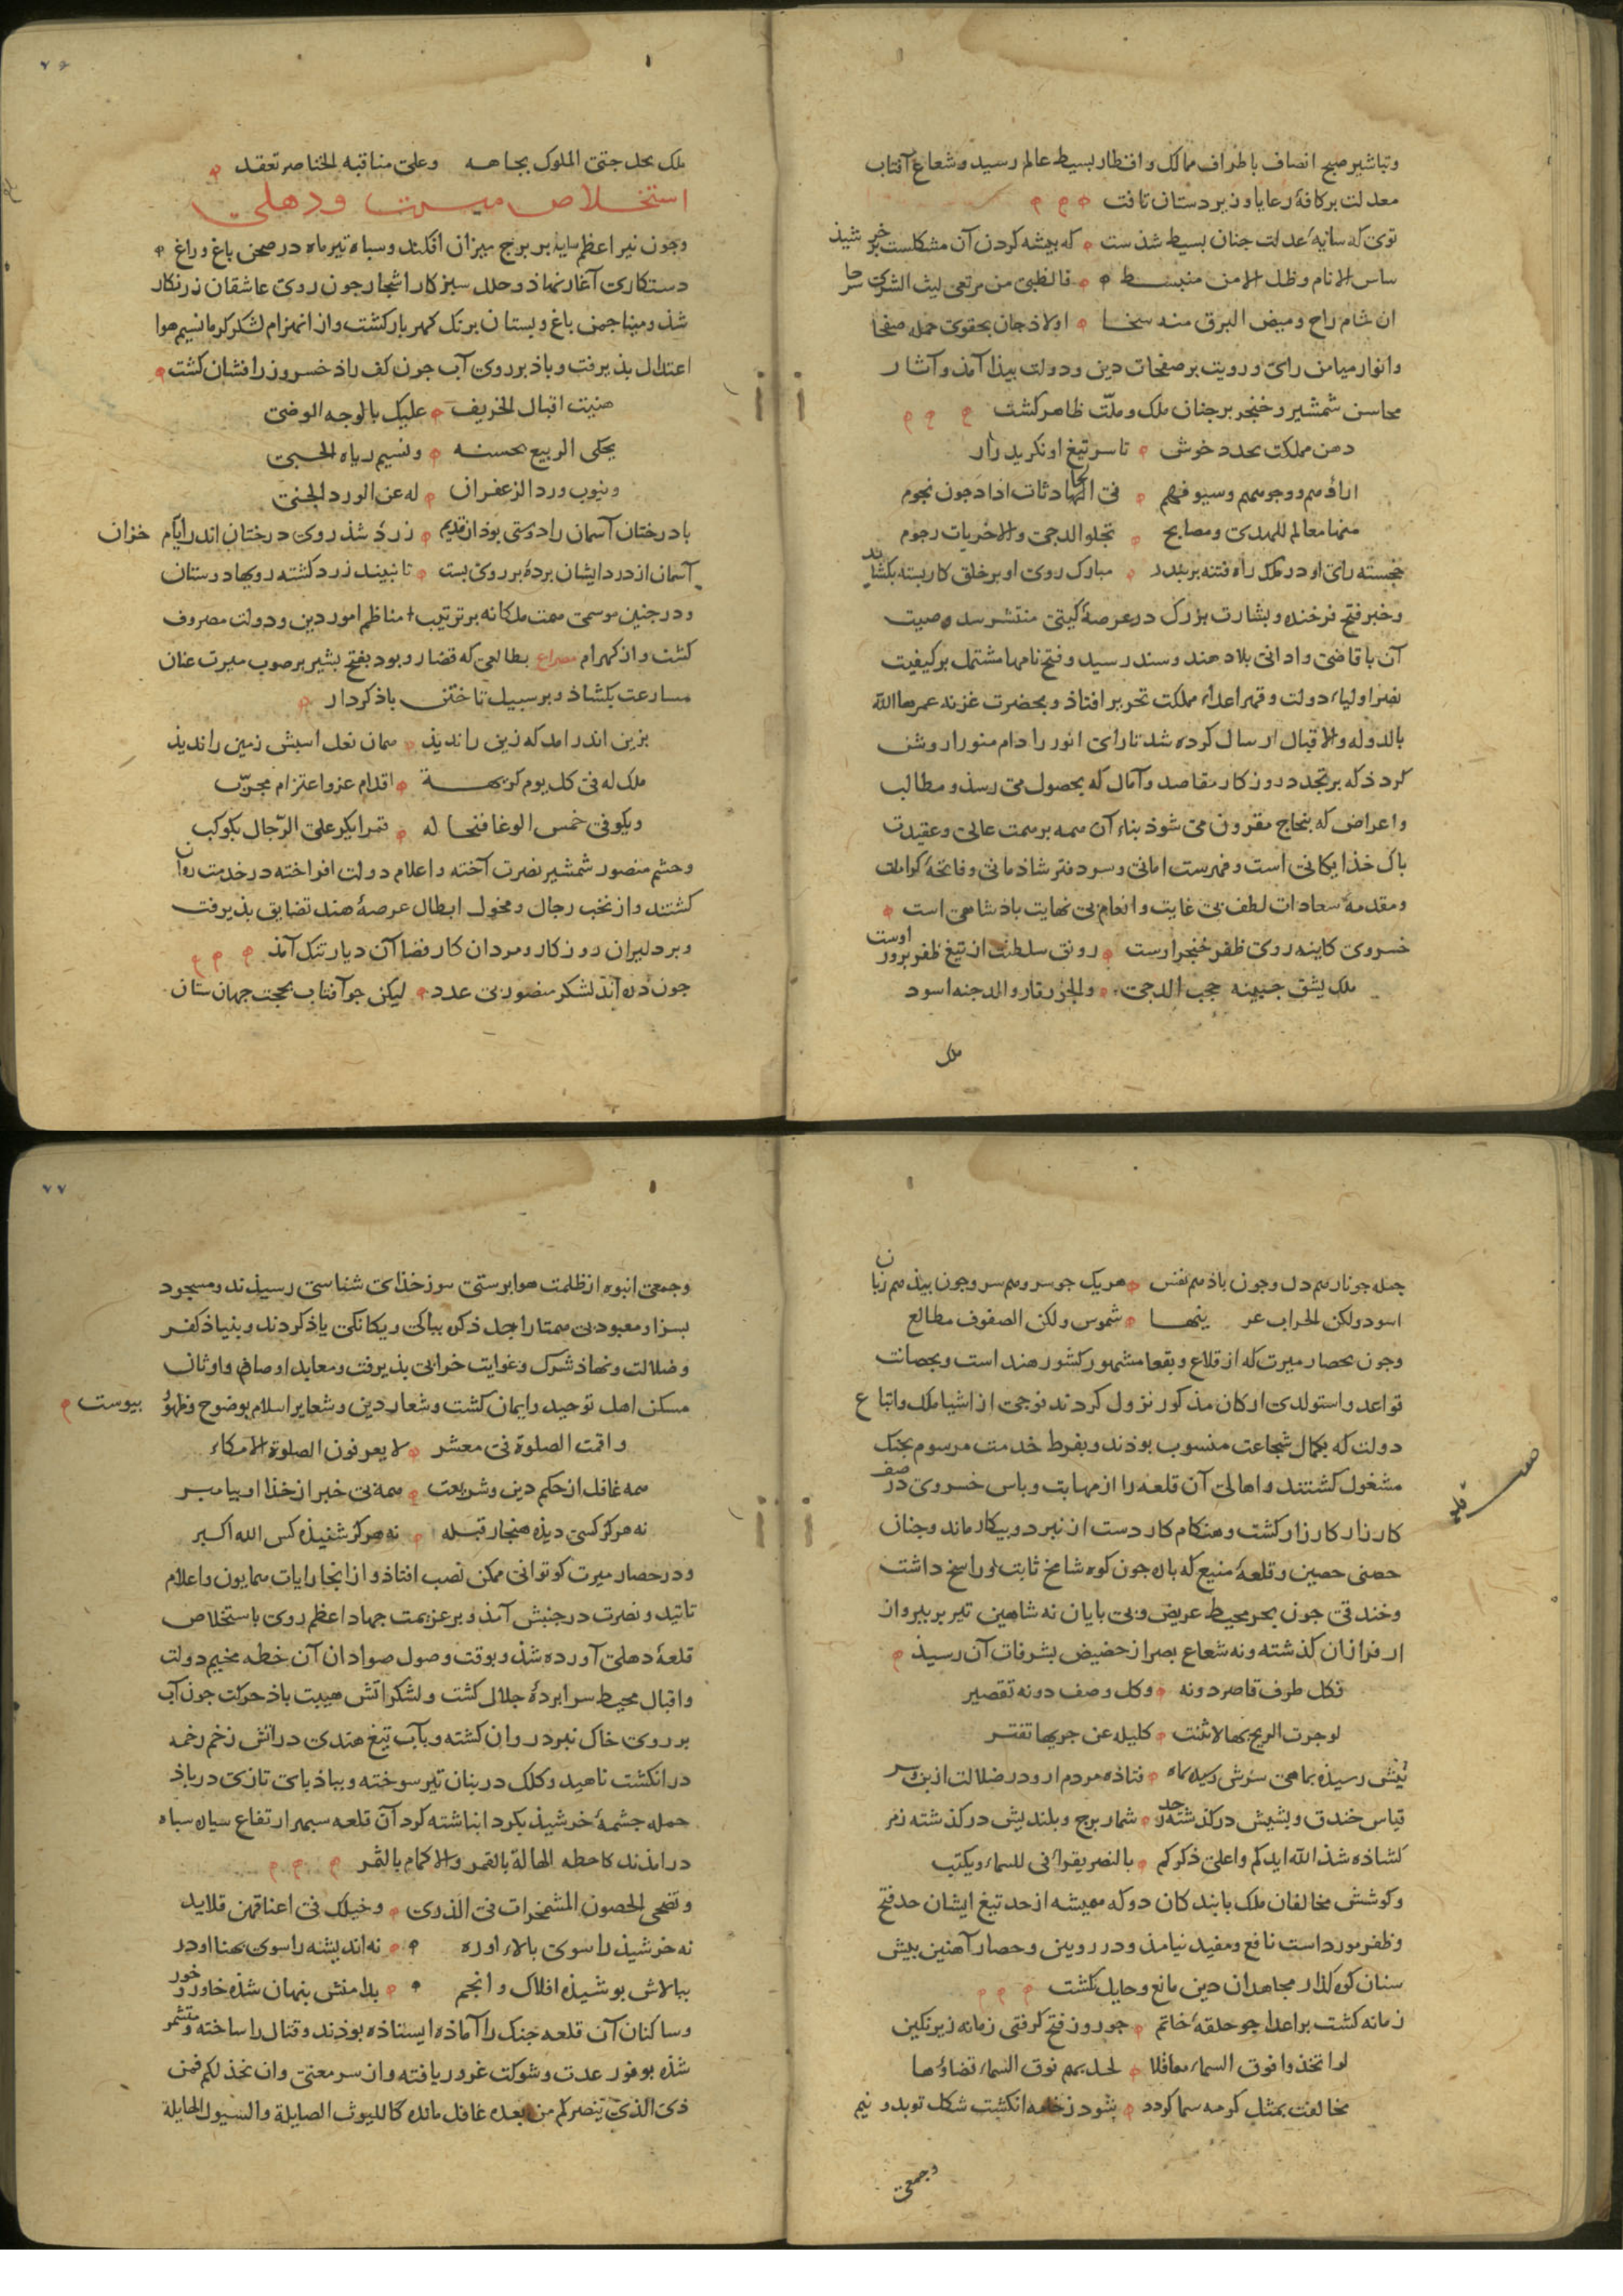 وتباشیر صبح انصاف باطراف ممالک واقطار بسیط عالم رسید وشعاع آفتاب
معدلت بر کافهٔ رعایا وزیردستان تافت
توی که سایهٔ عدلت جنان بسیط شذست که بیشه کردن آن مشکلست بر خرشیذ
ساس الانام وظل الامن منبسط فالظبی من مرتعی لیث الشری
ان شام راح ومیض البرق منه سخا اولاذ جان بحقوی حمله صفحا
وانوار میامن رای ورویت بر صفحات دین ودولت بیذا آمذ وآثار
محاسن شمشیر وخنجر بر جنان ملک وملت ظاهر کشت
دهن مملکت بخندد خوش تا سر تیغ او نکرید زار
اراؤهم ووجوههم وسیوفهم فی الحادثات اذا دجون نجوم
منها معالم للهدی ومصابح تجلو الدجی والاخریات رجوم
خجسته رای او در ملک راه فتنه بربندد مبارک روی او بر خلق کار بسته بکشاید
وخبر فتح فرخنده وبشارت بزرک در عرصهٔ کیتی منتشر شد وصیت
آن باقاصی وادانی بلاد هند وسند رسید وفتح نامها مشتمل بر کیفیت
نصر اولیاء دولت وقهر اعداء مملکت تحریر افتاذ وبحضرت غزنه عمرها الله
بالدوله والاقبال ارسال کرده شد تا رای انور را دام منورا روشن
کردذ که بر تجدد روزکار مقاصد وآمال که بحصول می رسذ ومطالب
واعراض که بنجاح مقرون می شوذ بناء آن همه بر همت عالی وعقیدت
باک خذایکانی است وفهرست امانی وسر دفتر شاذمانی وفاتحهٔ کرامات
ومقدمهٔ سعادات لطف بی غایت وانعام بی نهایت باذشاهی است
خسروی کاینه روی ظفر خنجر ارست رونق سلطنت از تیغ ظفر برور اوست
ملک یشق جبینه حجب الدجی والجو قار والدجنه اسود
ملک
ملک یحل جتی الملوک بجاهه وعلی مناقبه الخناصر تعقد
استخلاص میرت ودهلی
وجون نیر اعظم سایه بر برج میزان افکند وسباه تیرماه در صحن باغ وراغ
دستکاری آغاز نهاذ وحلل سبز کار اشجار جون روی عاشقان زرنکار
شذ ومینا جمن باغ وبستان برنک کهربار کشت واز انهزام لشکر کرما نسیم هوا
اعتدال بذیرفت وباذ بر روی آب جون کف راذ خسرو زر افشان کشت
هنیت اقبال الخریف علیک بالوجه الوضی
یحکی الربیع بحسنه ونسیم ریاه الحبی
وینوب ورد الزعفران له عن الورد الجنی
با درختان آسمان را دوستی بوذ از قدیم زرد شذ روی درختان اندر ایام خزان
آسمان از درد ایشان برده بر روی بست تا نبیند زرد کشته رویهاء دوستان
ودر جنین موسمی همت ملکانه بر ترتیب مناظم امور دین ودولت مصروف
کشت واز کهرام مصراع بطالعی که قضا رو بود بفتح بشیر بر صوب میرت عنان
مسارعت بکشاذ وبر سبیل تاختن باذ کردار
بزین اندر امد که زین را ندیذ همان نعل اسبش زمین را ندیذ
ملک له فی کل یوم کریهة اقدام عز واعتزام مجرب
ویکو فی خمس الوغا فتخاله قمرا یکر علی الرجال بکوکب
وحشم منصور شمشیر نصرت آخته واعلام دولت افراخته در خدمت روان
کشتند واز نخب رجال وفحول ابطال عرصهٔ هند تضایق بذیرفت
وبر دلیران روزکار ومردان کار فضا آن دیار تنک آمذ
جون ذره آند لشکر منصور بی عدد لیکن جو آفتاب بحجت جهان ستان
۷۶
جمله جو نار هم دل وجون باذ هم نفس هر یک جو سرو هم سر وجون بید هم زبان
اسود ولکن الحراب عرینها شموس ولکن الصفوف مطالع
وجون بحصار میرت که از قلاع وبقعا مشهور کشور هند است وبحصانت
قواعد واستواری ارکان مذکور نزول کردند فوجی از اشیاع ملک واتباع
دولت که بکمال شجاعت منسوب بوذند وبفرط خدمت مرسوم بجنک
مشغول کشتند واهالی آن قلعه را از مهابت وباس خسروی در صف
کارزار کار زار کشت وهنکام کار دست از نبرد وبیکار ماند وجنان
حصنی حصین وقلعهٔ منیع که باره جون کوه شامخ ثابت وراسخ داشت
وخندقی جون بحر محیط عریض وبی بایان نه شاهین تیر بربیرواز
از فراز ان کذشته ونه شعاع بصر از حضیض بشرفات آن رسیذ
فکل طرف قاصر دونه وکل وصف دونه تقصیر
لو جرت الریح بها لانثنت کلیله عن جریها تفتر
قیاس خندق وبشیش درکذشته ز حد شمار برج وبلندیش درکذشته ز مر
کشاذه شذ الله ایدکم واعلی ذکرکم بالنصر یقرا فی السماء ویکتب
وکوشش مخالفان ملک بابندکان دو که همیشه از حد تیغ ایشان حد فتح
وظفر مورد است نافع ومفید نیامذ ودر رویین وحصار آهنین بیش
سنان کوه کذار مجاهدان دین مانع وحایل نکشت
زمانه کشت بر اعدا جو حلقهٔ خاتم جو روز فتح کرفتی زمانه زیر نکین
لو اتخذوا فوق السماء معاقلا لحل بهم فوق السماء قضاؤها
مخالفت بمثل کر مه سما کردد شود ز زخمه انکشت شکل تو بدو نیم
وجمعی
وجمعی انبوه از ظلمت هوابرستی بنور خذای شناسی رسیذند ومسجود
بسزا ومعبود بی همتا را جل ذکره بباکی ویکانکی یاذ کردند وبنیاذ کفر
وضلالت ونهاذ شرک وغوایت خرابی بذیرفت ومعابد اوصام واوثان
مسکن اهل توحید وایمان کشت وشعار دین وشعایر اسلام بوضوح وظهور بیوست
واقمت الصلوة فی معشر لا یعرفون الصلوة الا مکاء
همه غافل از حکم دین وشریعت همه بی خبر از خذا وبیامبر
نه هرکز کسی دیذه هنجار قبله نه هرکز شنیذه کس الله اکبر
ودر حصار میرت کوتوانی ممکن نصب افتاذ واز انجا رایات همایون واعلام
تائید ونصرت در جنبش آمذ وبر عزیمت جهاد اعظم روی باستخلاص
قلعهٔ دهلی آورده شذ وبوقت وصول سواد ان آن خطه مخیم دولت
واقبال محیط سرابردهٔ جلال کشت ولشکر اتش هیبت باذ حرکت جون آب
بر روی خاک نبرد روان کشته وبآب تیغ هندی در اتش زخم زخمه
در انکشت ناهید وکلک در بنان تیر سوخته وبباذ بای تازی در باذ
حمله جشمهٔ خرشیذ بکرد انباشته کرد آن قلعه سبهر ارتفاع سیاه سباه
درامذند کاحاطه الهالة بالقمر والاکمام بالثمر
وتضحی الحصون المشمخرات فی الذری وخیلک فی اعناقهن قلاید
نه خرشیذ را سوی بالاء او ره نه اندیشه را سوی بهنا او در
ببالاش بوشیذه افلاک وانجم بدامنش بنهان شذه خاور وخور
وساکنان آن قلعه جنک را آماذه ایستاذه بوذند وقتال را ساخته ومتشمر
شذه بوفور عدت وشوکت غرور یافته واز سر معنی وان یخذلکم فمن
ذی الذی ینصرکم من بعده غافل مانده کاللیوث الصایلة والسیول الحایلة
۷۷